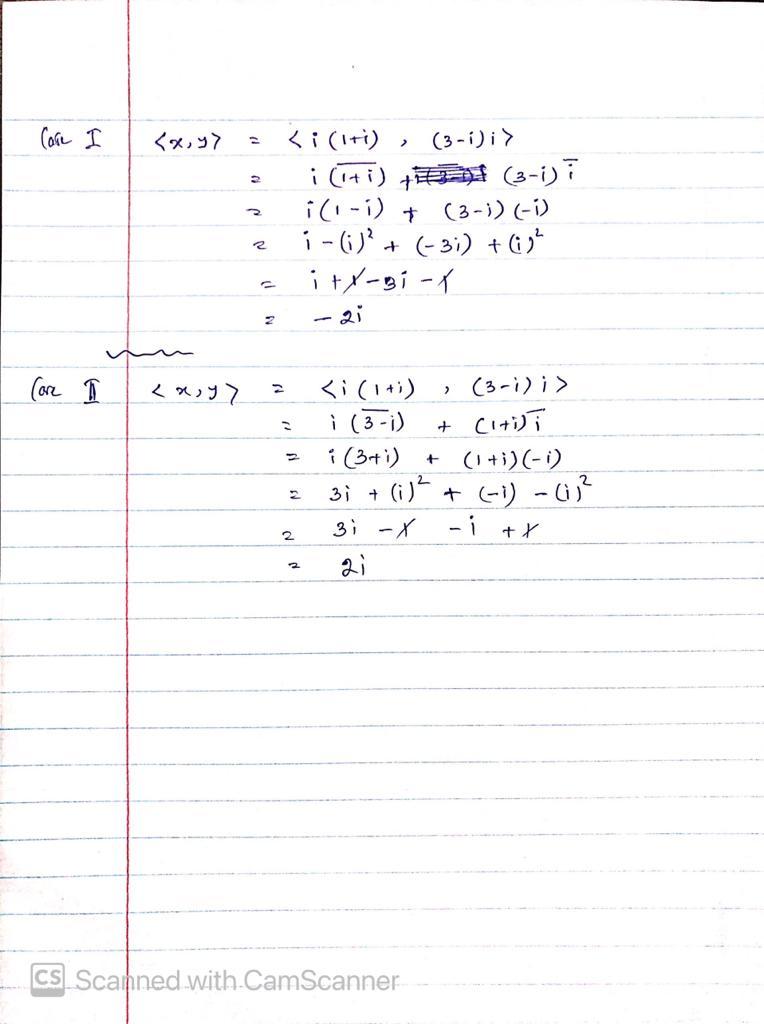 Case I <x,y> = <i(1+i) , (3-i)i>
= i(\overline{1+i}) + (3-i)\overline{i}
= i(1-i) + (3-i)(-i)
= i-(i)² + (-3i) + (i)²
= i+1-3i-1
= -2i
Case II <x,y> = <i(1+i) , (3-i)i>
= i(\overline{3-i}) + (1+i)\overline{i}
= i(3+i) + (1+i)(-i)
= 3i + (i)² + (-i) - (i)²
= 3i - 1 - i + 1
= 2i
CS Scanned with CamScanner